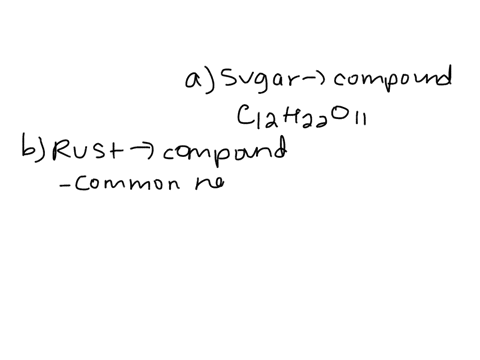 a) Sugar → compound
C12H22O11
b) Rust → compound
- common na